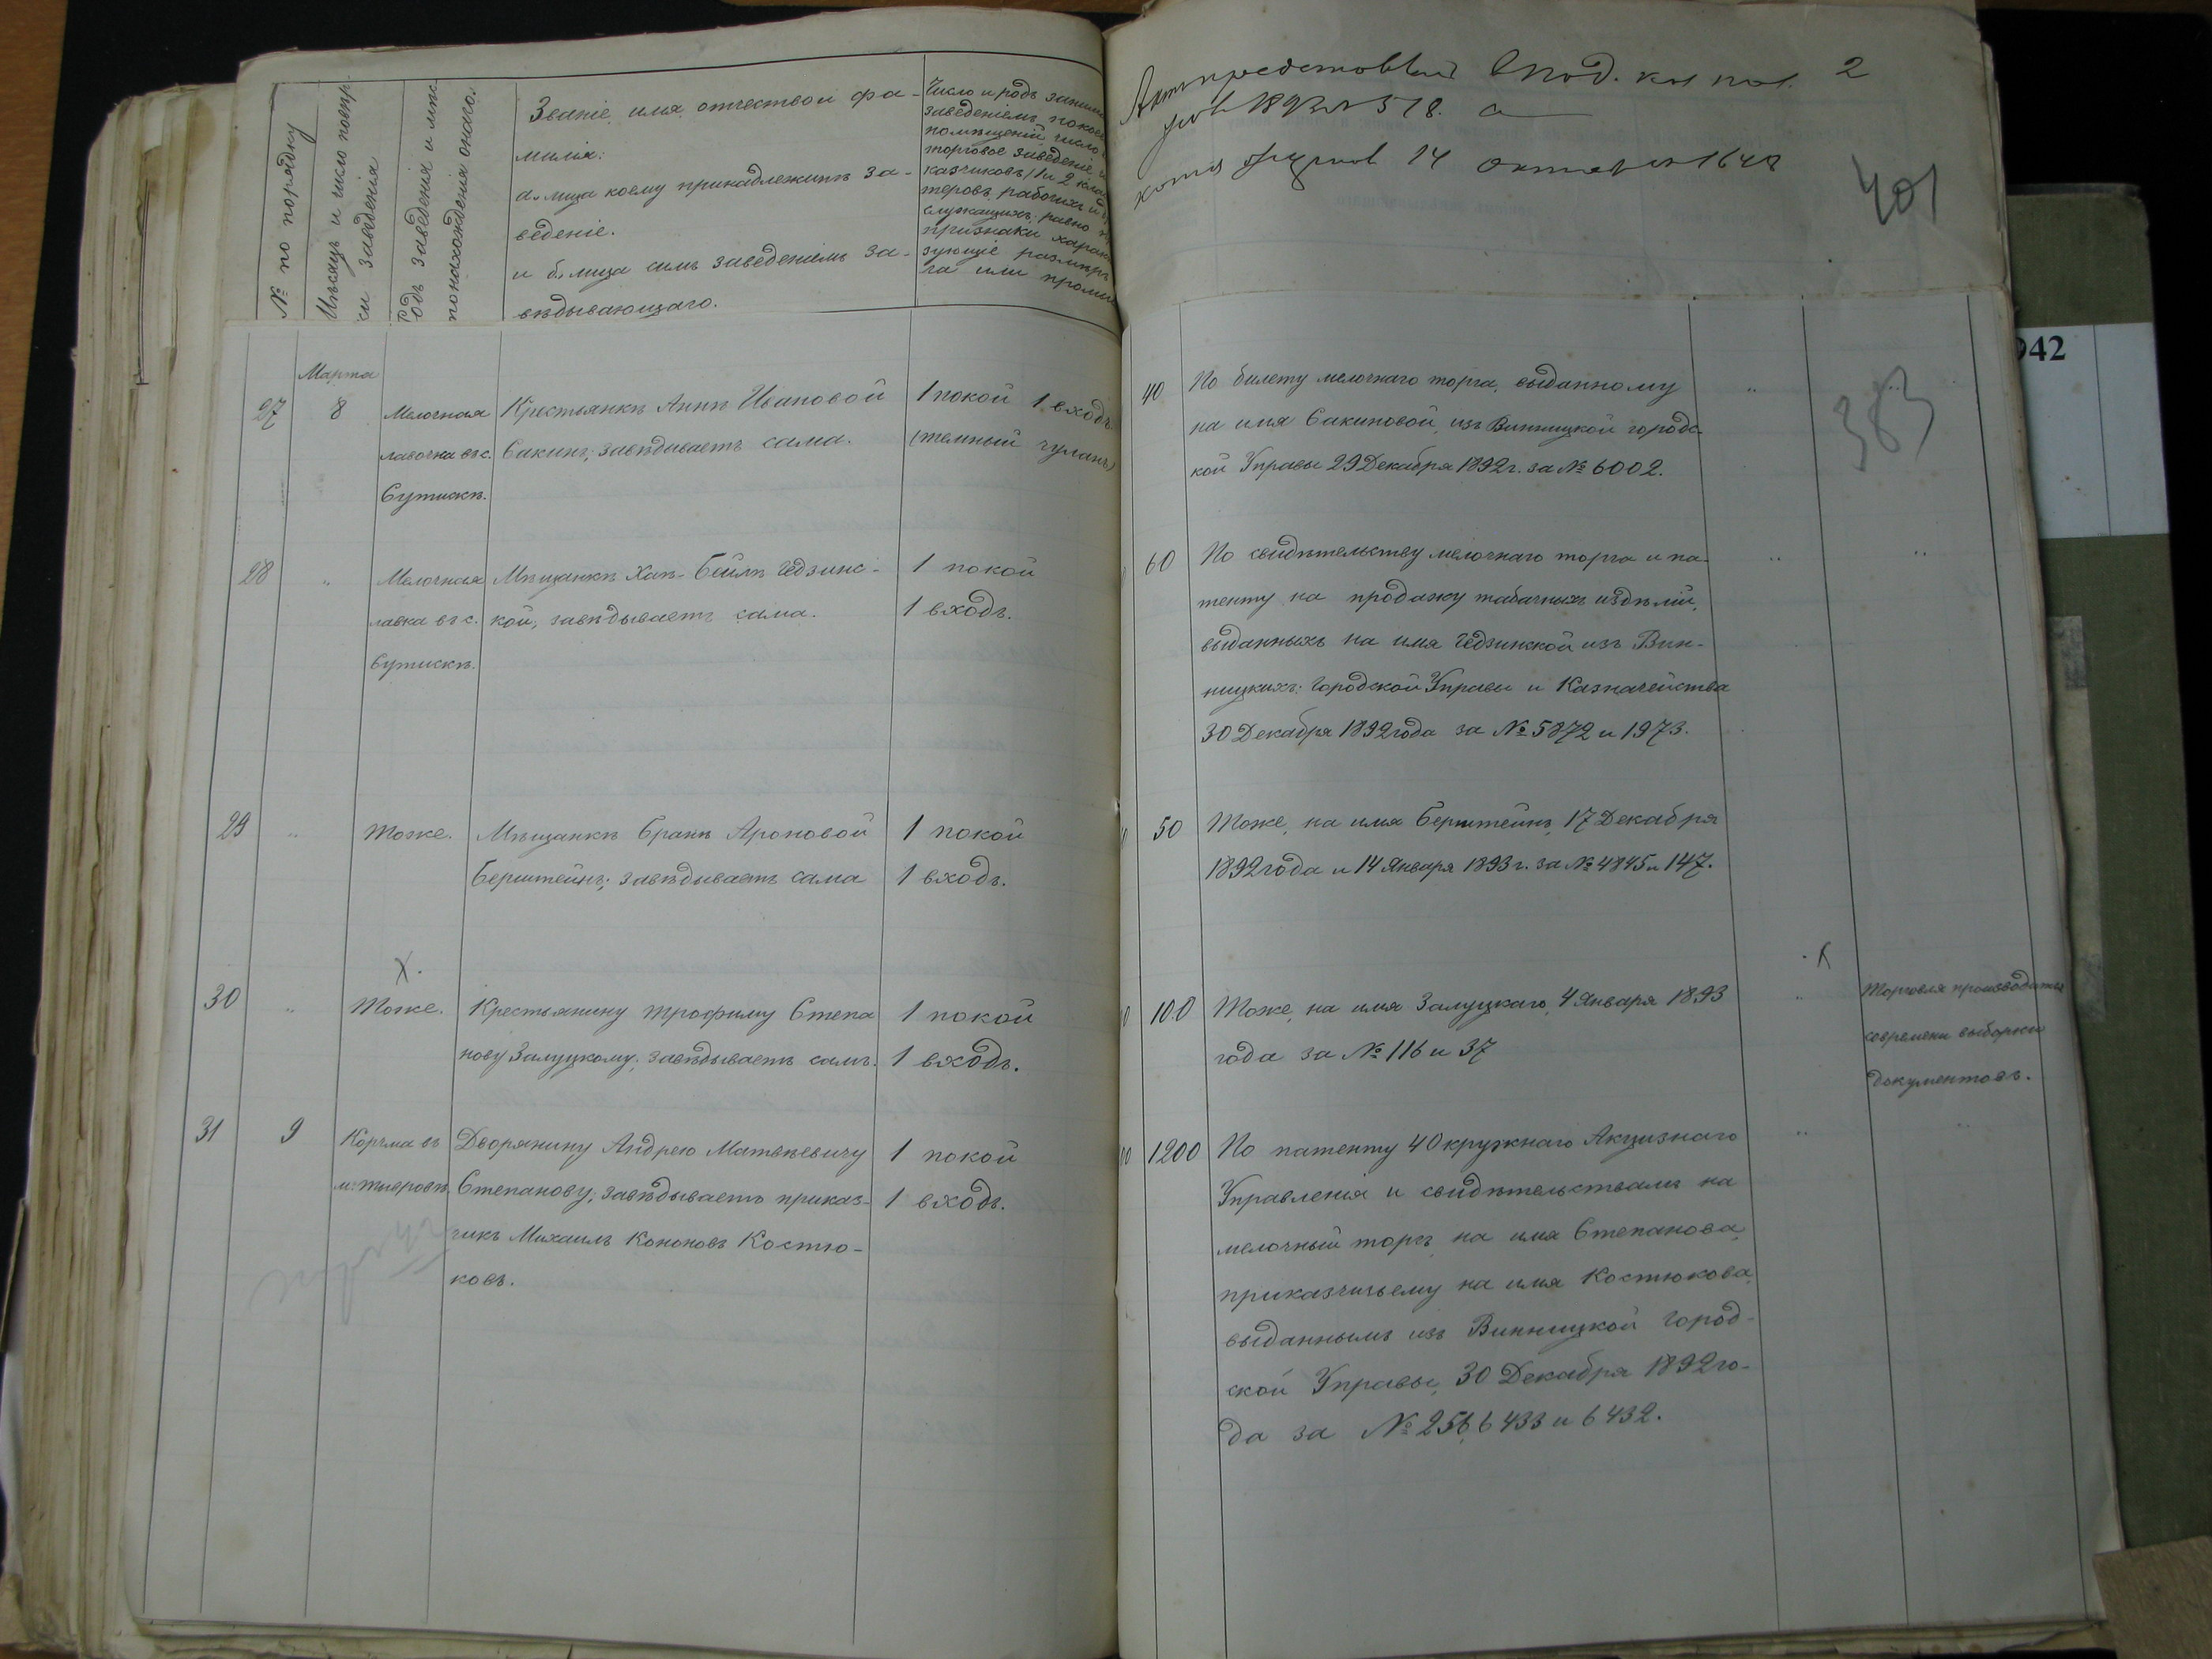 № по порядку
Мѣсяцъ и число повѣр
ки заведенія
Родъ заведенія и мѣс
понахожденія онаго.
Званіе, имя, отчество и фа-
милія:
а., лица коему принадлежитъ за-
веденіе.
и б., лица симъ заведеніемъ за-
вѣдывающаго.
Число и родъ заним
заведеніемъ покоев
помѣщеній, число
торговое заведеніе
казчиковъ 1 и 2 клас
теровъ, рабочихъ и
служащихъ, равно
признаки харак
зующіе размѣръ
га или промы
2
401
383
942
Марта
27 8 Мелочная Крестьянкѣ Аннѣ Ивановой 1 покой 1 входъ
лавочка въ с. Сакинъ; завѣдываетъ сама. (темный чуланъ)
Сутискѣ.
40 По билету мелочнаго торга, выданному
на имя Сакиновой, изъ Винницкой городс-
кой Управы 29 Декабря 1892 г. за № 6002.
28 " Мелочная Мѣщанкѣ Хаѣ-Бейлѣ Гедзинс- 1 покой
лавка въ с. кой, завѣдываетъ сама. 1 входъ.
Сутискѣ.
60 По свидѣтельству мелочнаго торга и па-
тенту на продажу табачныхъ издѣлій,
выданныхъ на имя Гедзинской изъ Вин-
ницкихъ: Городской Управы и Казначейства
30 Декабря 1892 года за № 5872 и 1973.
29 " Тоже. Мѣщанкѣ Бранѣ Ароновой 1 покой
Берштейнъ; завѣдываетъ сама 1 входъ.
50 Тоже, на имя Берштейнъ, 17 Декабря
1892 года и 14 Января 1893 г. за № 4845 и 147.
30 " Тоже. Крестьянину Трофиму Степа 1 покой
нову Залуцкому; завѣдываетъ самъ. 1 входъ.
100 Тоже, на имя Залуцкаго, 4 Января 1893
года за № 116 и 37
Торговля производится
современи выборки
документовъ.
31 9 Корчма въ Дворянину Андрею Матвѣевичу 1 покой
м. Тывровѣ. Степанову; завѣдываетъ приказ- 1 входъ.
чикъ Михаилъ Кононовъ Костю-
ковъ.
1200 По патенту 4 Окружнаго Акцизнаго
Управленія и свидѣтельствамъ на
мелочный торгъ, на имя Степанова,
приказчичьему на имя Костюкова,
выданнымъ изъ Винницкой Город-
ской Управы, 30 Декабря 1892 го-
да за № 256, 6433 и 6432.